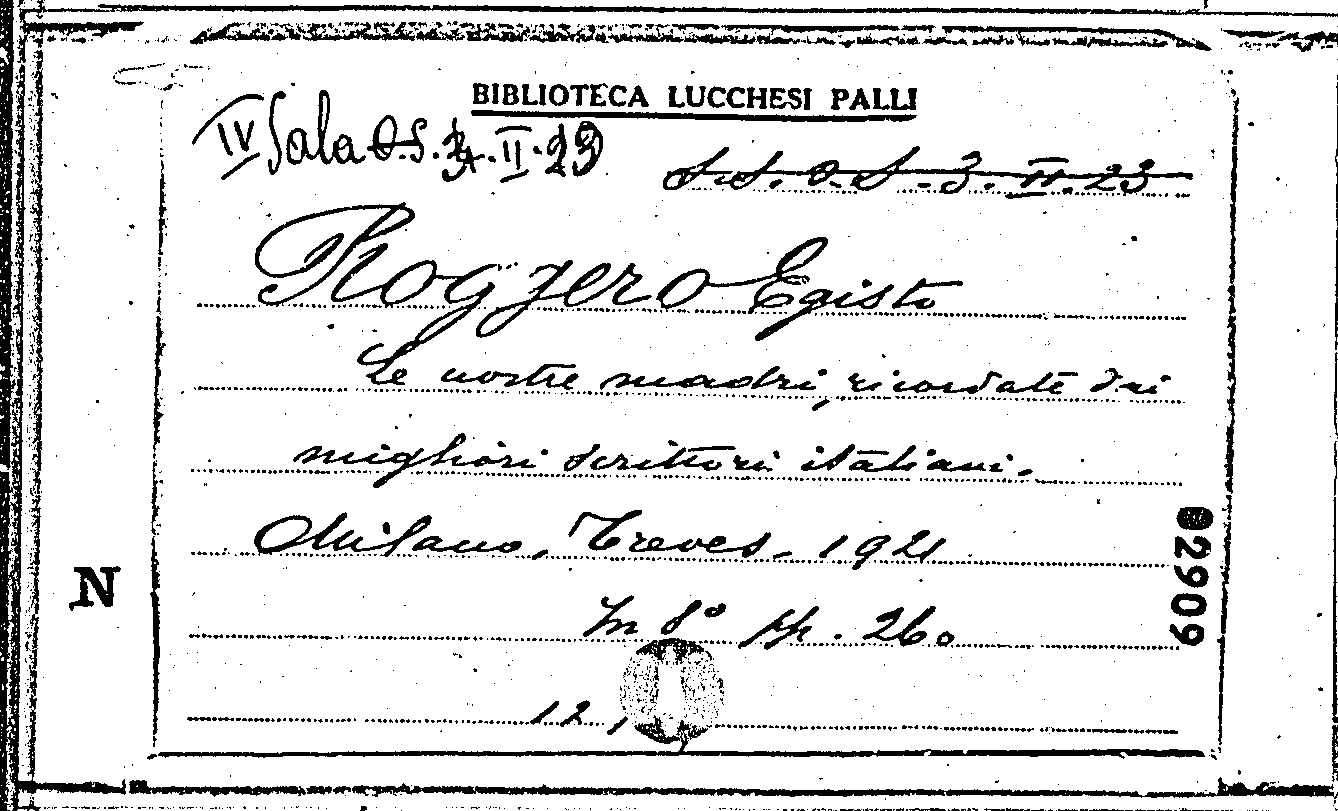 BIBLIOTECA LUCCHESI PALLI
IV Sala O.S. II. 23
S. S. O. S. 3. II. 23
Roggero Egisto
Le nostre madri, ricordate dai
migliori scrittori italiani.
Milano, Treves. 1921
In 8° pp. 260
12,
N
02909